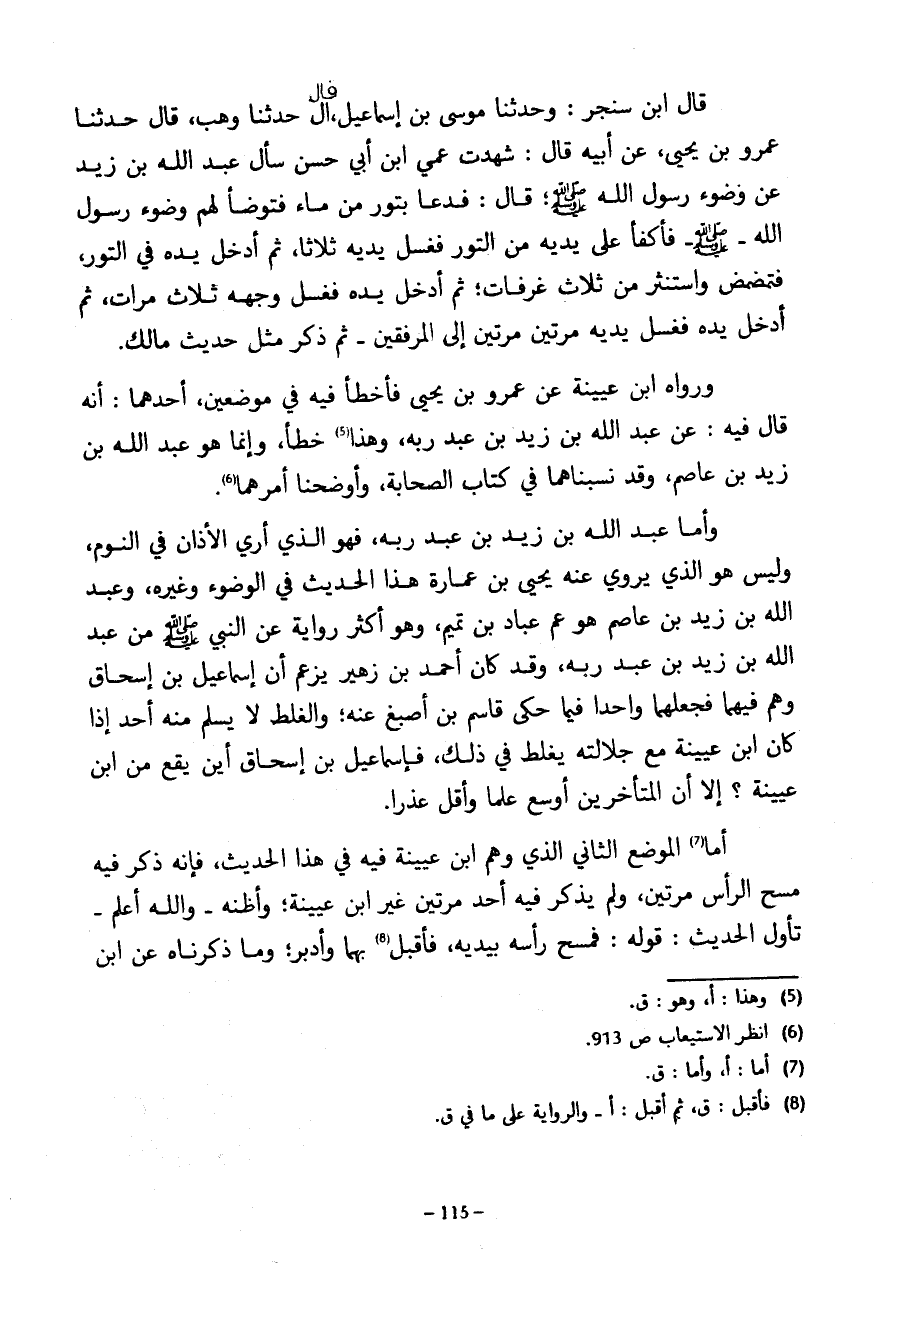 قال ابن سنجر : وحدثنا موسى بن إسماعيل، قال حدثنا وهب، قال حدثنا
عمرو بن يحيى، عن أبيه قال : شهدت عمي ابن أبي حسن سأل عبد الله بن زيد
عن وضوء رسول الله ﷺ؛ قال : فدعا بتور من ماء فتوضأ لهم وضوء رسول
الله - ﷺ- فأكفأ على يديه من التور فغسل يديه ثلاثا، ثم أدخل يده في التور،
فتمضمض واستنثر من ثلاث غرفات؛ ثم أدخل يده فغسل وجهه ثلاث مرات، ثم
أدخل يده فغسل يديه مرتين مرتين إلى المرفقين - ثم ذكر مثل حديث مالك.
ورواه ابن عيينة عن عمرو بن يحيى فأخطأ فيه في موضعين، أحدهما : أنه
قال فيه : عن عبد الله بن زيد بن عبد ربه، وهذا(5) خطأ، وإنما هو عبد الله بن
زيد بن عاصم، وقد نسبناهما في كتاب الصحابة، وأوضحنا أمرهما(6).
وأما عبد الله بن زيد بن عبد ربه، فهو الذي أري الأذان في النوم،
وليس هو الذي يروي عنه يحيى بن عمارة هذا الحديث في الوضوء وغيره، وعبد
الله بن زيد بن عاصم هو عم عباد بن تميم، وهو أكثر رواية عن النبي ﷺ من عبد
الله بن زيد بن عبد ربه، وقد كان أحمد بن زهير يزعم أن إسماعيل بن إسحاق
وهم فيهما فجعلهما واحدا فيما حكى قاسم بن أصبغ عنه؛ والغلط لا يسلم منه أحد إذا
كان ابن عيينة مع جلالته يغلط في ذلك، فإسماعيل بن إسحاق أين يقع من ابن
عيينة ؟ إلا أن المتأخرين أوسع علما وأقل عذرا.
أما(7) الموضع الثاني الذي وهم ابن عيينة فيه في هذا الحديث، فإنه ذكر فيه
مسح الرأس مرتين، ولم يذكر فيه أحد مرتين غير ابن عيينة؛ وأظنه - والله أعلم -
تأول الحديث : قوله : فمسح رأسه بيديه، فأقبل(8) بهما وأدبر؛ وما ذكرناه عن ابن
(5) وهذا : أ، وهو : ق.
(6) انظر الاستيعاب ص 913.
(7) أما : أ، وأما : ق.
(8) فأقبل : ق، ثم أقبل : أ - والرواية على ما في ق.
- 115 -